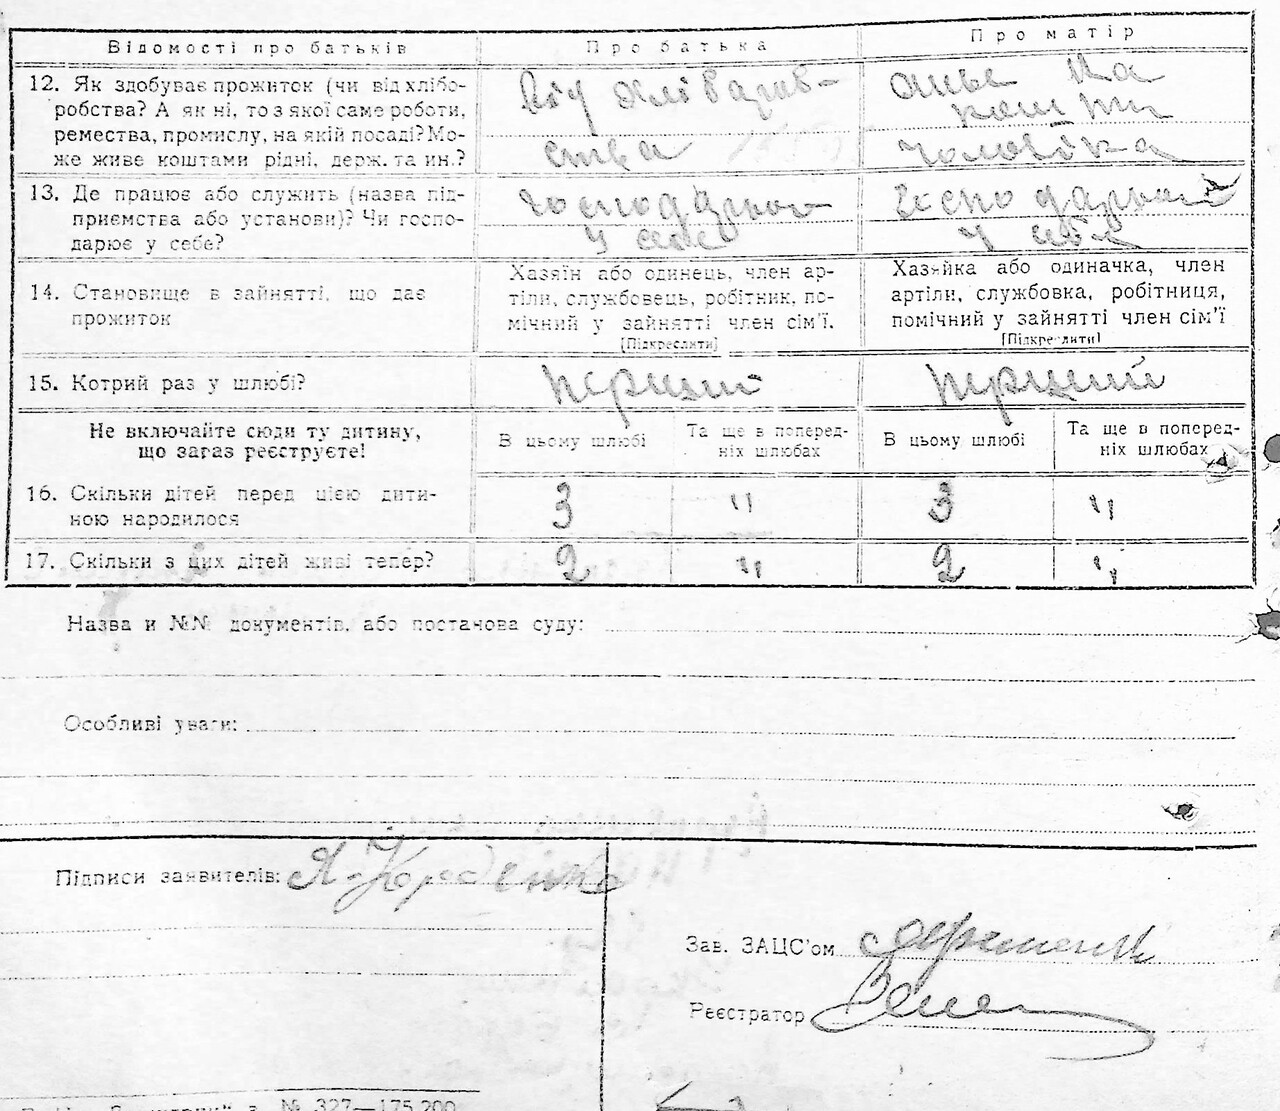 Відомості про батьків
Про батька
Про матір
12. Як здобуває прожиток (чи від хлібо-
робства? А як ні, то з якої саме роботи,
ремества, промислу, на якій посаді? Мо-
же живе коштами рідні, держ. та ин.?
Від хлібороб-
ства
на
кошти
чоловіка
13. Де працює або служить (назва під-
приємства або установи)? Чи госпо-
дарює у себе?
Господарює
у себе
Господарює
у себе
14. Становище в зайнятті, що дає
прожиток
Хазяїн або одинець, член ар-
тіли, службовець, робітник, по-
мічний у зайнятті член сім'ї.
[Підкреслити]
Хазяйка або одиначка, член
артіли, службовка, робітниця,
помічний у зайнятті член сім'ї
[Підкреслити]
15. Котрий раз у шлюбі?
перший
перший
Не включайте сюди ту дитину,
що зараз реєструєте!
В цьому шлюбі
Та ще в поперед-
ніх шлюбах
В цьому шлюбі
Та ще в поперед-
ніх шлюбах
16. Скільки дітей перед цією дити-
ною народилося
3
"
3
"
17. Скільки з цих дітей живі тепер?
2
"
2
"
Назва и №№ документів, або постанова суду:
Особливі уваги:
Підписи заявителів:
Зав. ЗАЦС'ом
Реєстратор
№ 327—175.200